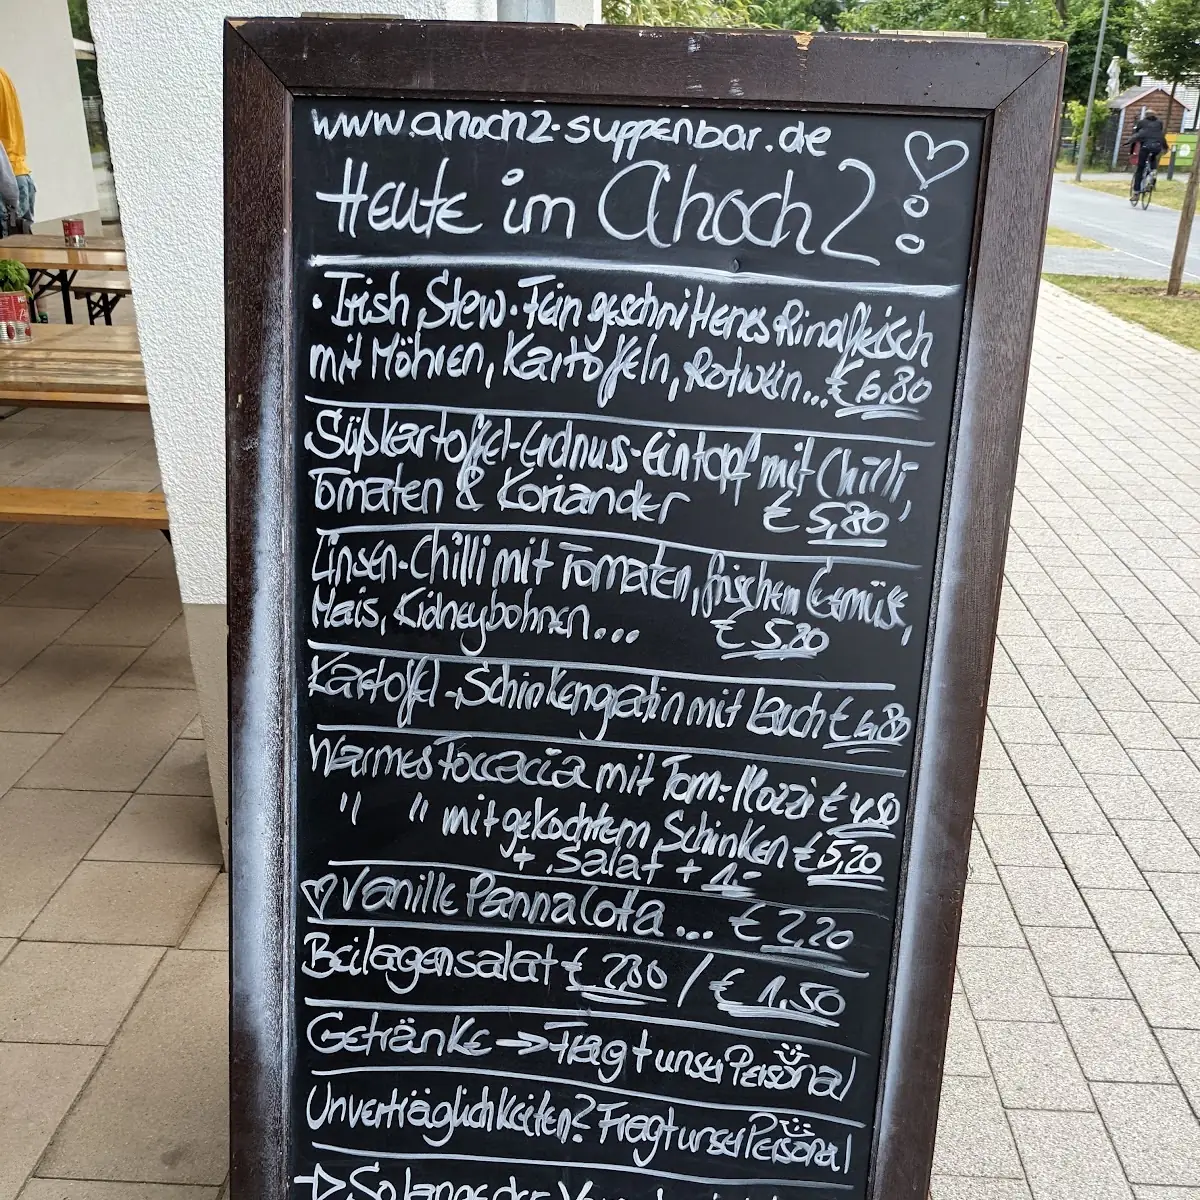 www.ahoch2-suppenbar.de
Heute im Ahoch2
· Irish Stew · Fein geschnittenes Rindfleisch
mit Möhren, Kartoffeln, Rotwein... € 6,80
Süßkartoffel-Erdnuss-Eintopf mit Chilli,
Tomaten & Koriander € 5,80
Linsen-Chilli mit Tomaten, frischem Gemüse,
Mais, Kidneybohnen... € 5,20
Kartoffel-Schinkengratin mit Lauch € 6,80
Warmes Foccacia mit Tom-Mozzi € 4,50
" " mit gekochtem Schinken € 5,20
+ Salat + 1.-
Vanille Panna Cotta... € 2,20
Beilagensalat € 2,80 / € 1,50
Getränke → Fragt unser Personal
Unverträglichkeiten? Fragt unser Personal
→ Solange der